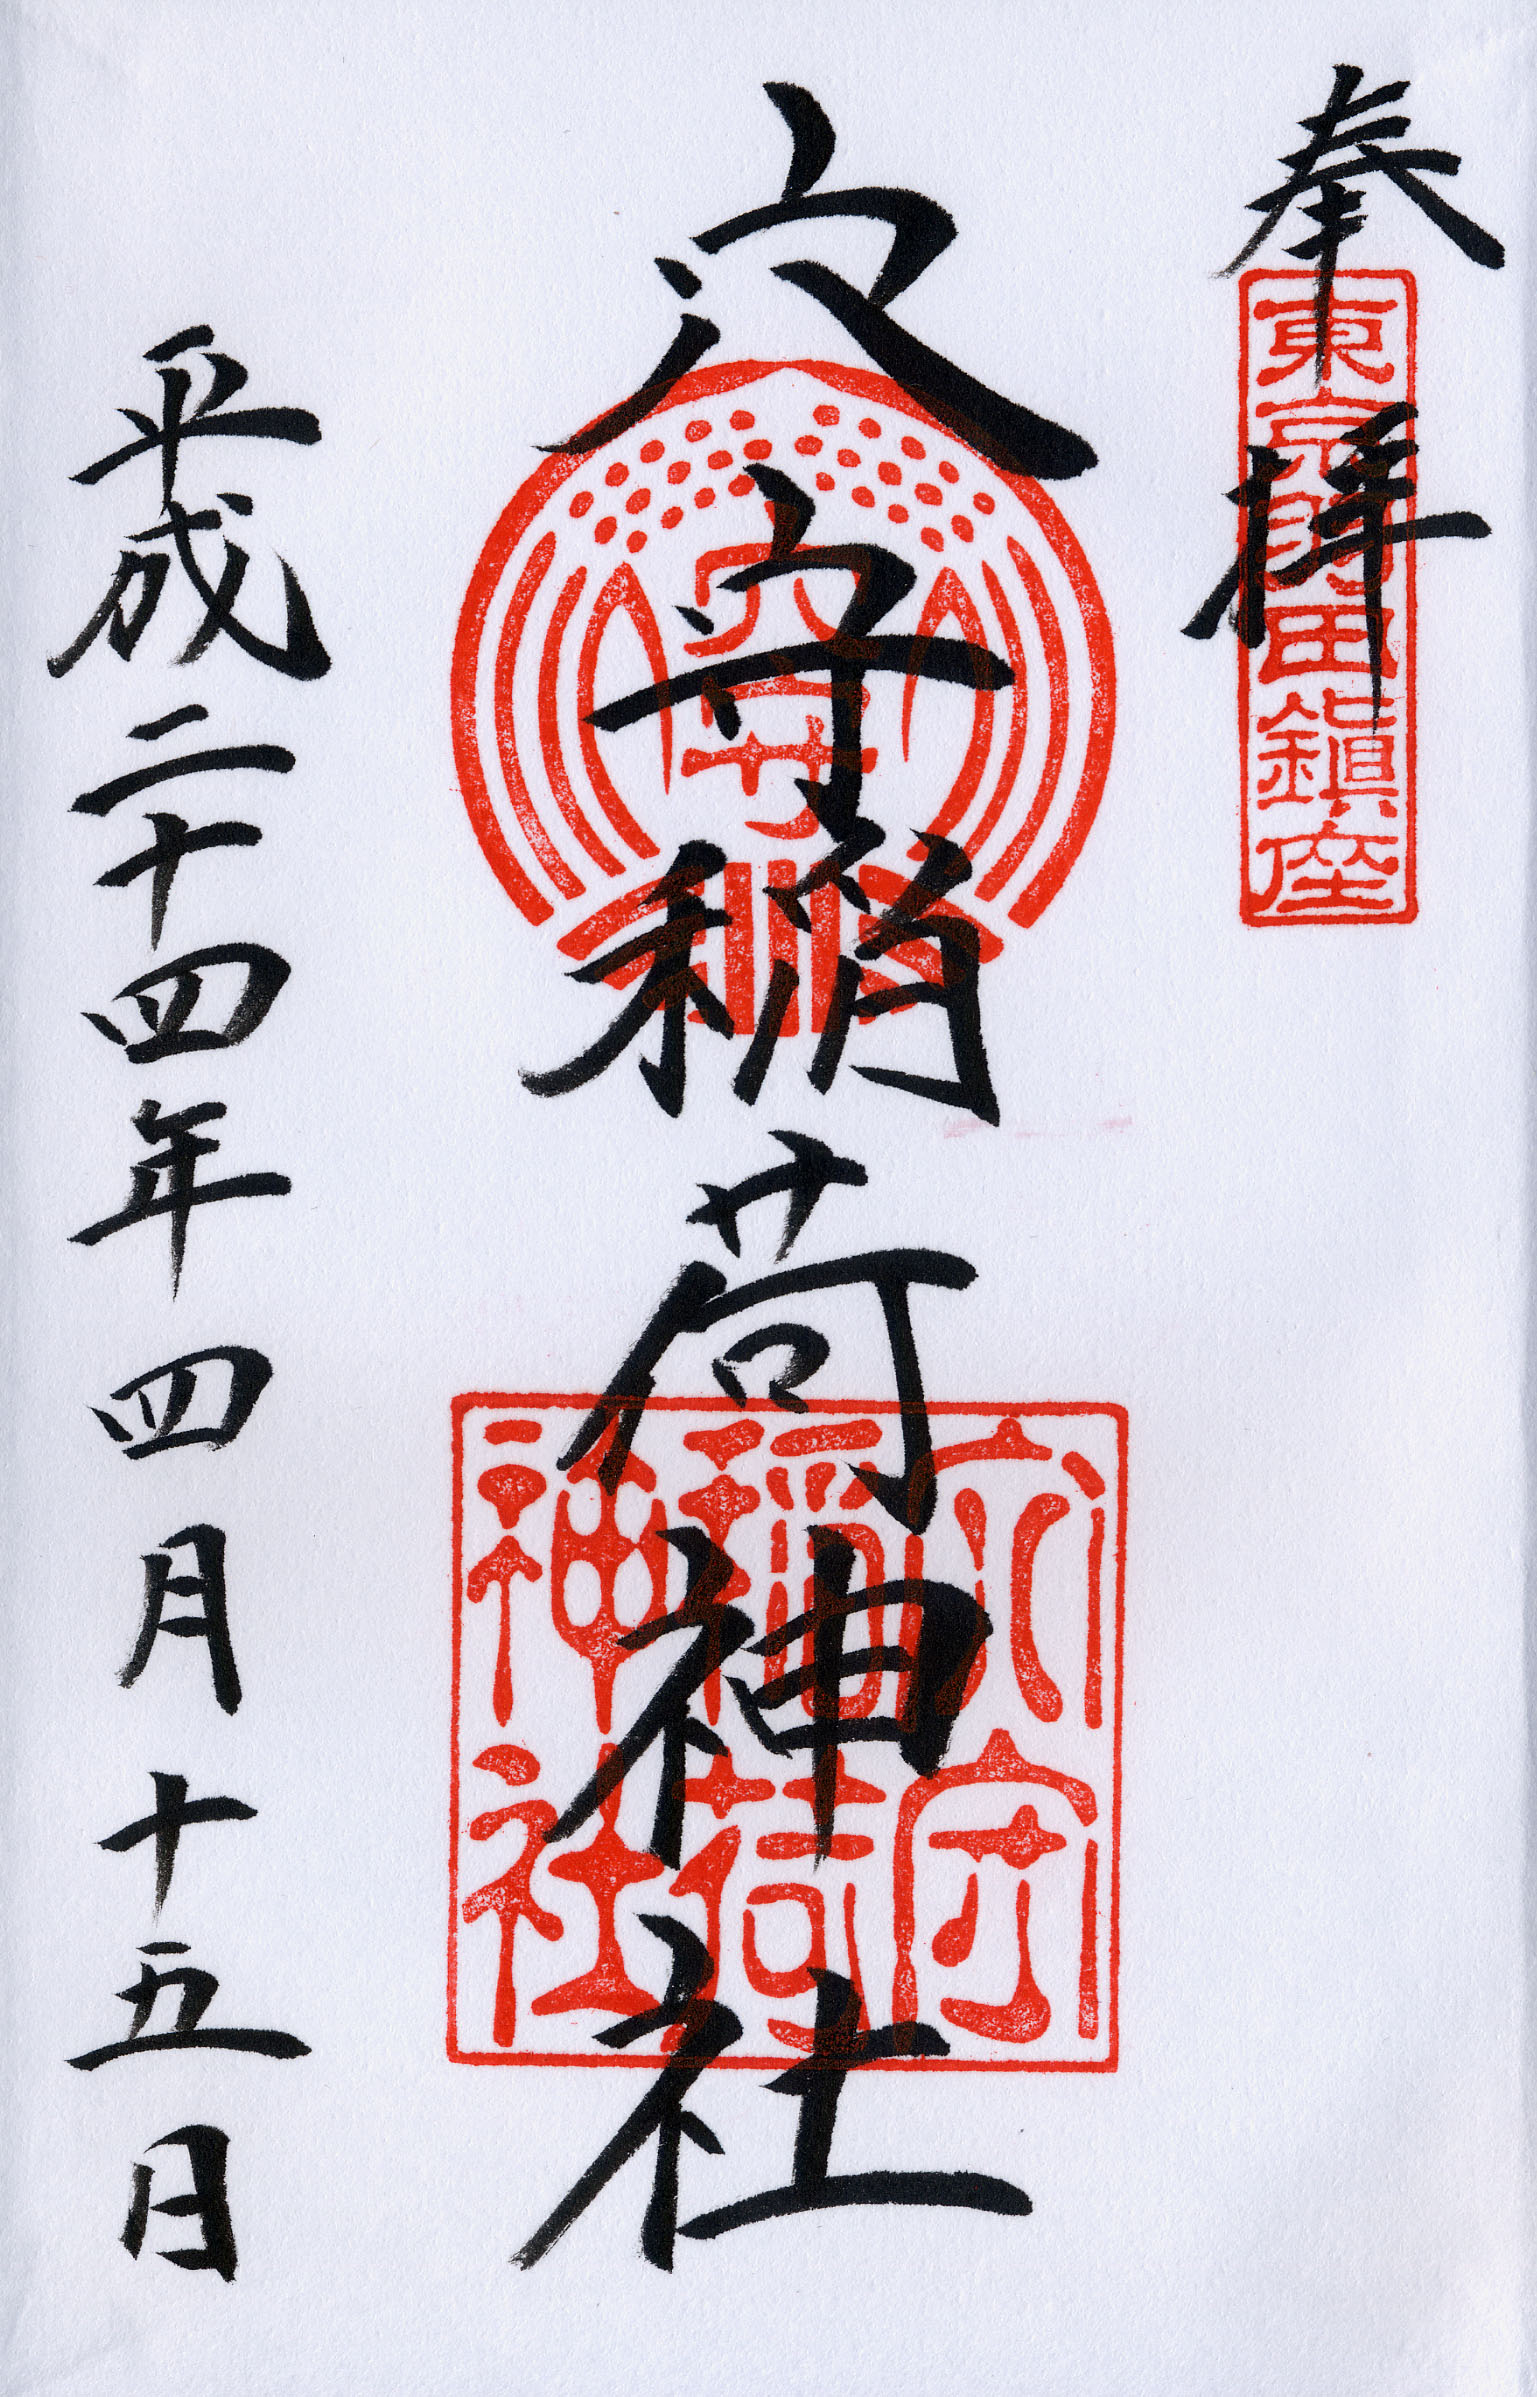 奉拝
東京羽田鎮座
穴守稲荷神社
穴守
穴守稲荷神社
平成二十四年四月十五日